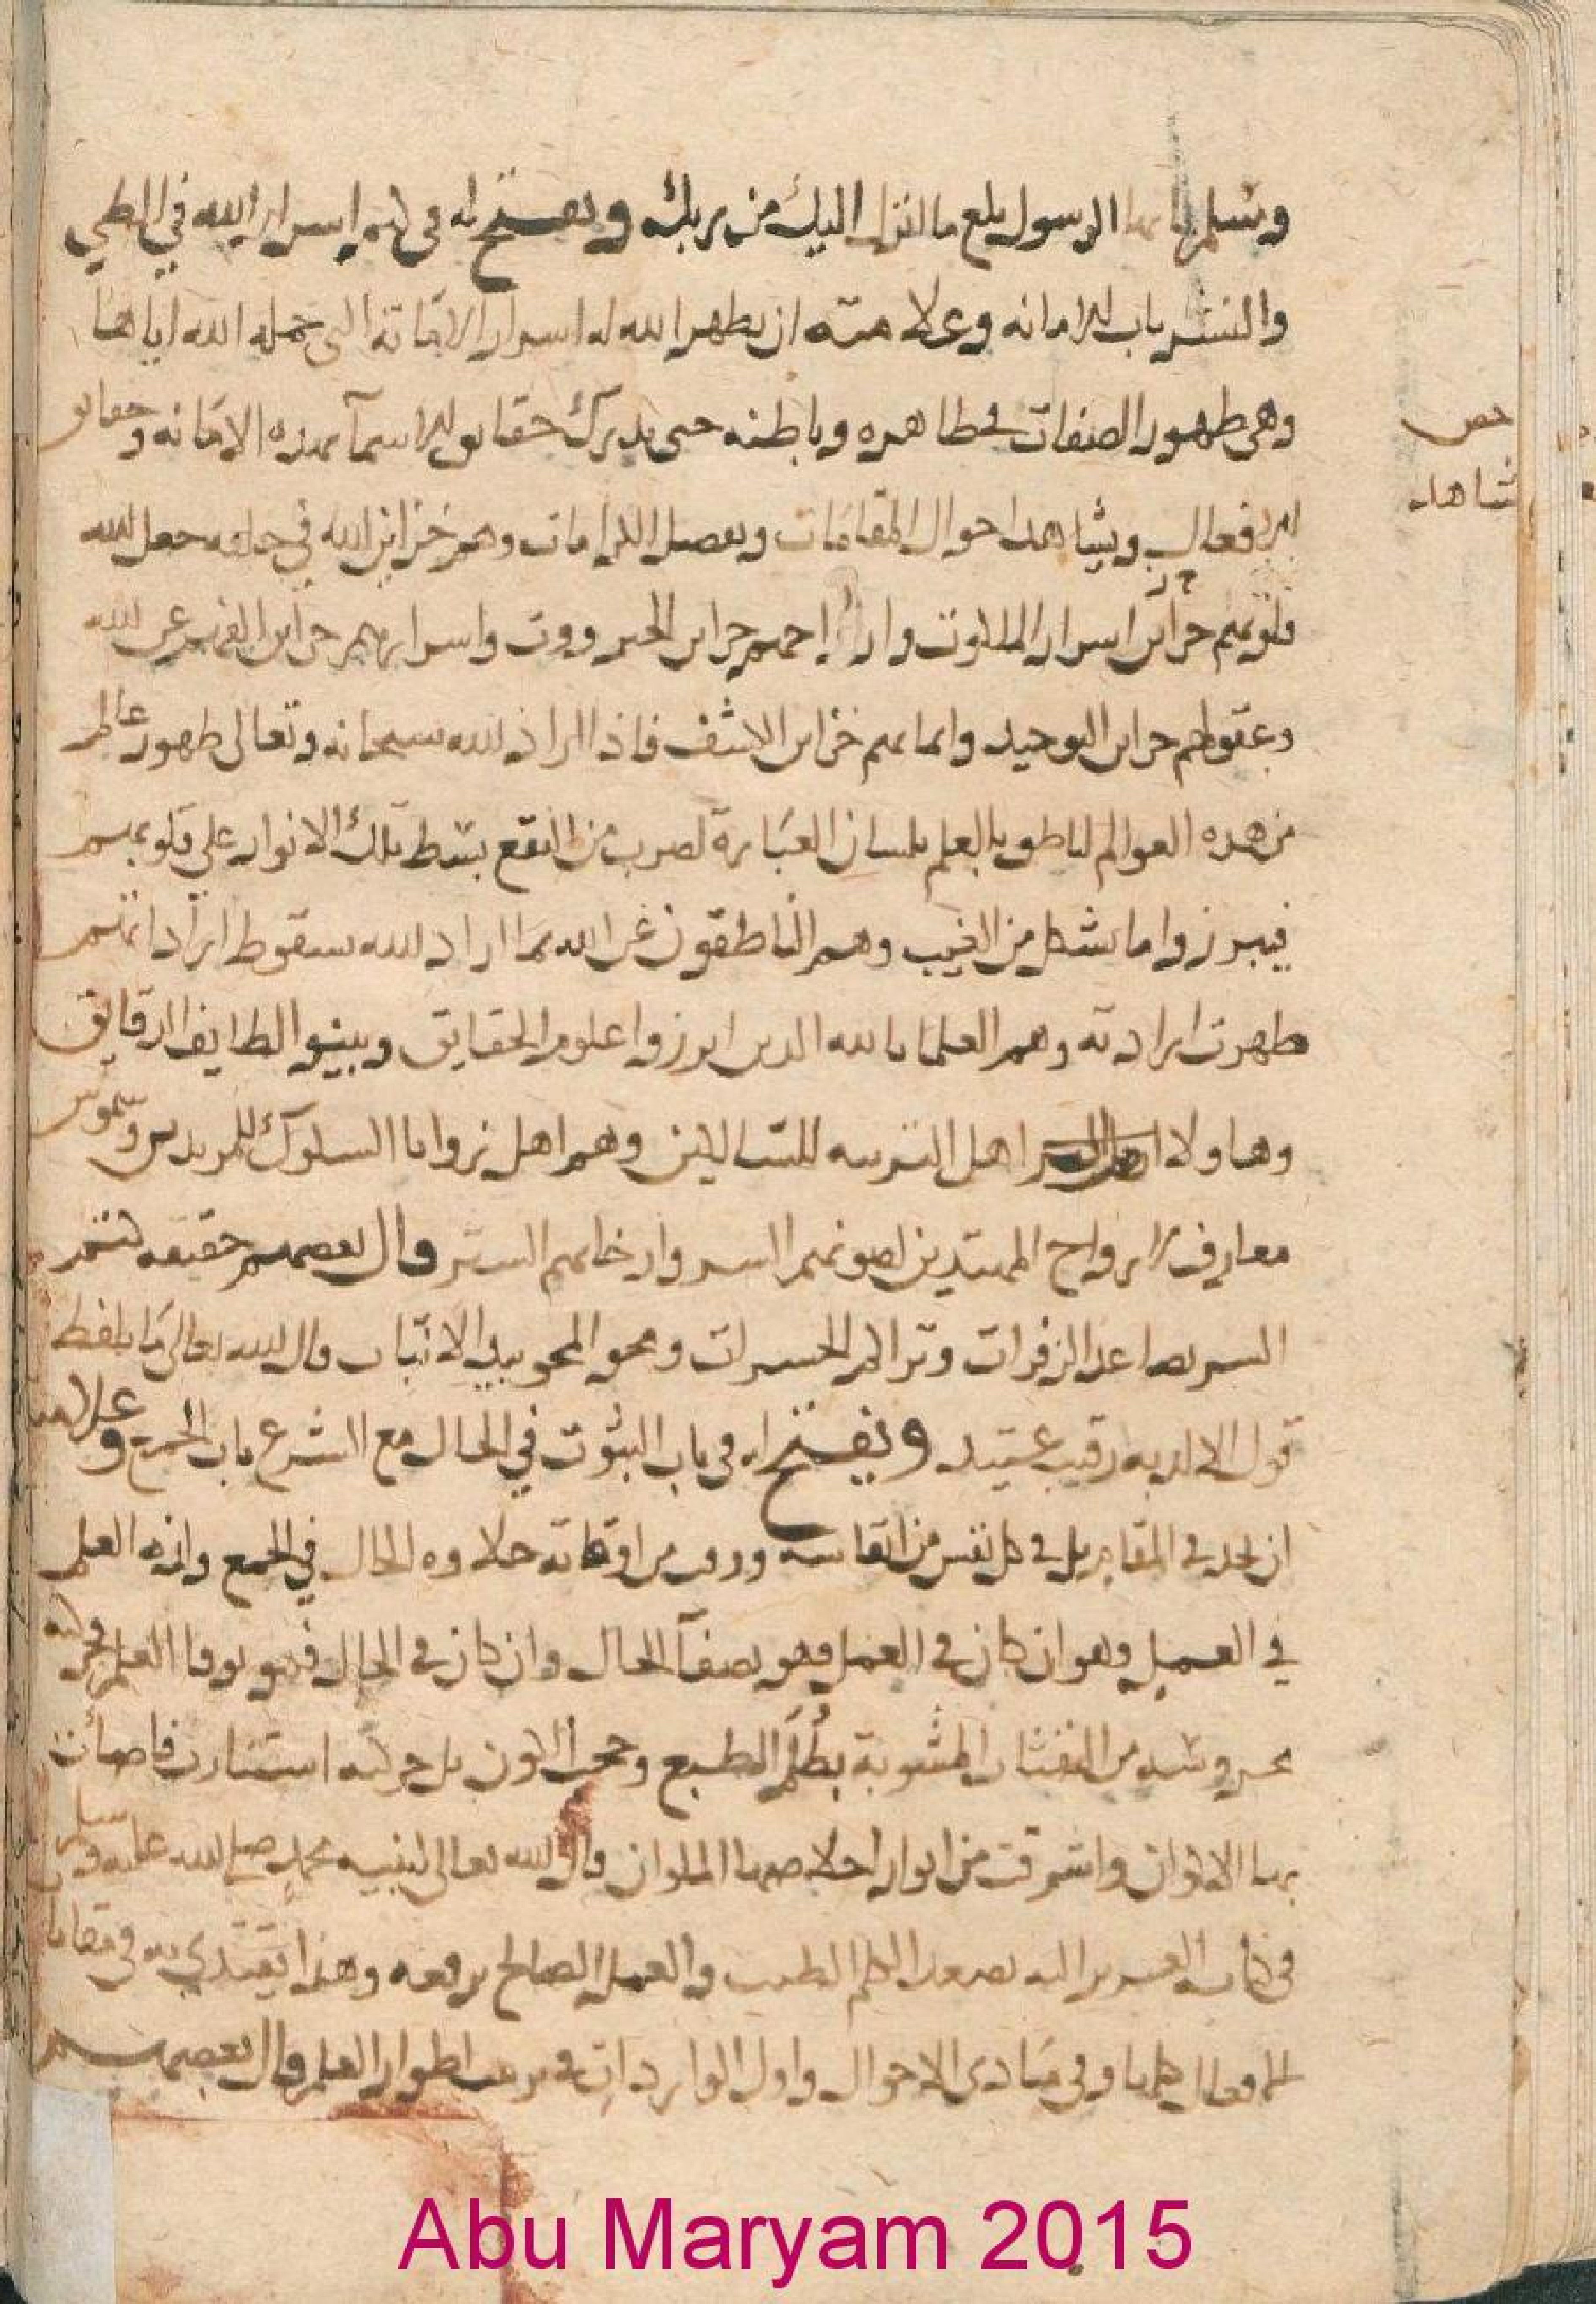 وسلم يا ايها الرسول بلغ ما انزل اليك من ربك ويفتح له في اسرار الله في الطي
والنشر باب الامانه وعلامته ان يظهر الله له اسرار الامانة التي حمله الله اياها
وهي ظهور الصفات ظاهره وباطنه حتى يدرك حقايق الاسمآ بهذه الامانه وحقايق
الافعال ويشاهد احوال المقامات وتفصيل الكرامات وهم خزاين الله في جعل الله
قلوبهم خزاين اسرار الملكوت وارواحهم خزاين الجبروت واسرارهم خزاين عن الله
وعقولهم خزاين التوحيد وايمانهم خزاين الكشف فاذا اراد الله سبحانه وتعالى ظهور عالم
من هذه العوالم بالعلم بلسان العبارة لضرب من النفع بسط تلك الانوار على قلوبهم
فيبرزوا ما شكل من الغيب وهم الناطقون عن الله بما اراد الله سقوط ارادتهم
ظهرت ارادته وهم العلما بالله الذين ابرزوا علوم الحقايق وبينوا لطايف الدقايق
وهاولا اهل التربيه للسالكين وهم اهل زوايا السلوك للمريدين وشموس
معارف ارواح المهتدين لصونهم السر وارخايهم الستر وقال بعضهم حقيقه كتم
السر تصاعد الزفرات وتراكم الحسرات ومحو المحو الاثبات قال الله تعالى ما يلفظ
قول الا لديه رقيب عتيد ويفتح له في باب الثبوت في الحال مع الشرع باب الجمع وعلامته
ان في كل نفس من انفاسه ووقت من اوقاته حلاوه الحال في الجمع ولذه العلم
في العمل وهو ان كان في العمل فهو بصفآ الحال وان كان في الحال فهو بوفا العلم
من المشوبة بظلم الطبع وحجب الكون بل حركته استنارت فاضأت
بها الاكوان واشرقت من انوار اخلاصها الملوان قال الله تعالى لنبيه محمد صلى الله عليه وسلم
في كتابه العزيز اليه يصعد الكلم الطيب والعمل الصالح يرفعه وهذا يقتدي به في مقامات
الافعال كلها وفي مبادى الاحوال واول الواردات في اطوار العلم وقال بعضهم
شاهد
Abu Maryam 2015